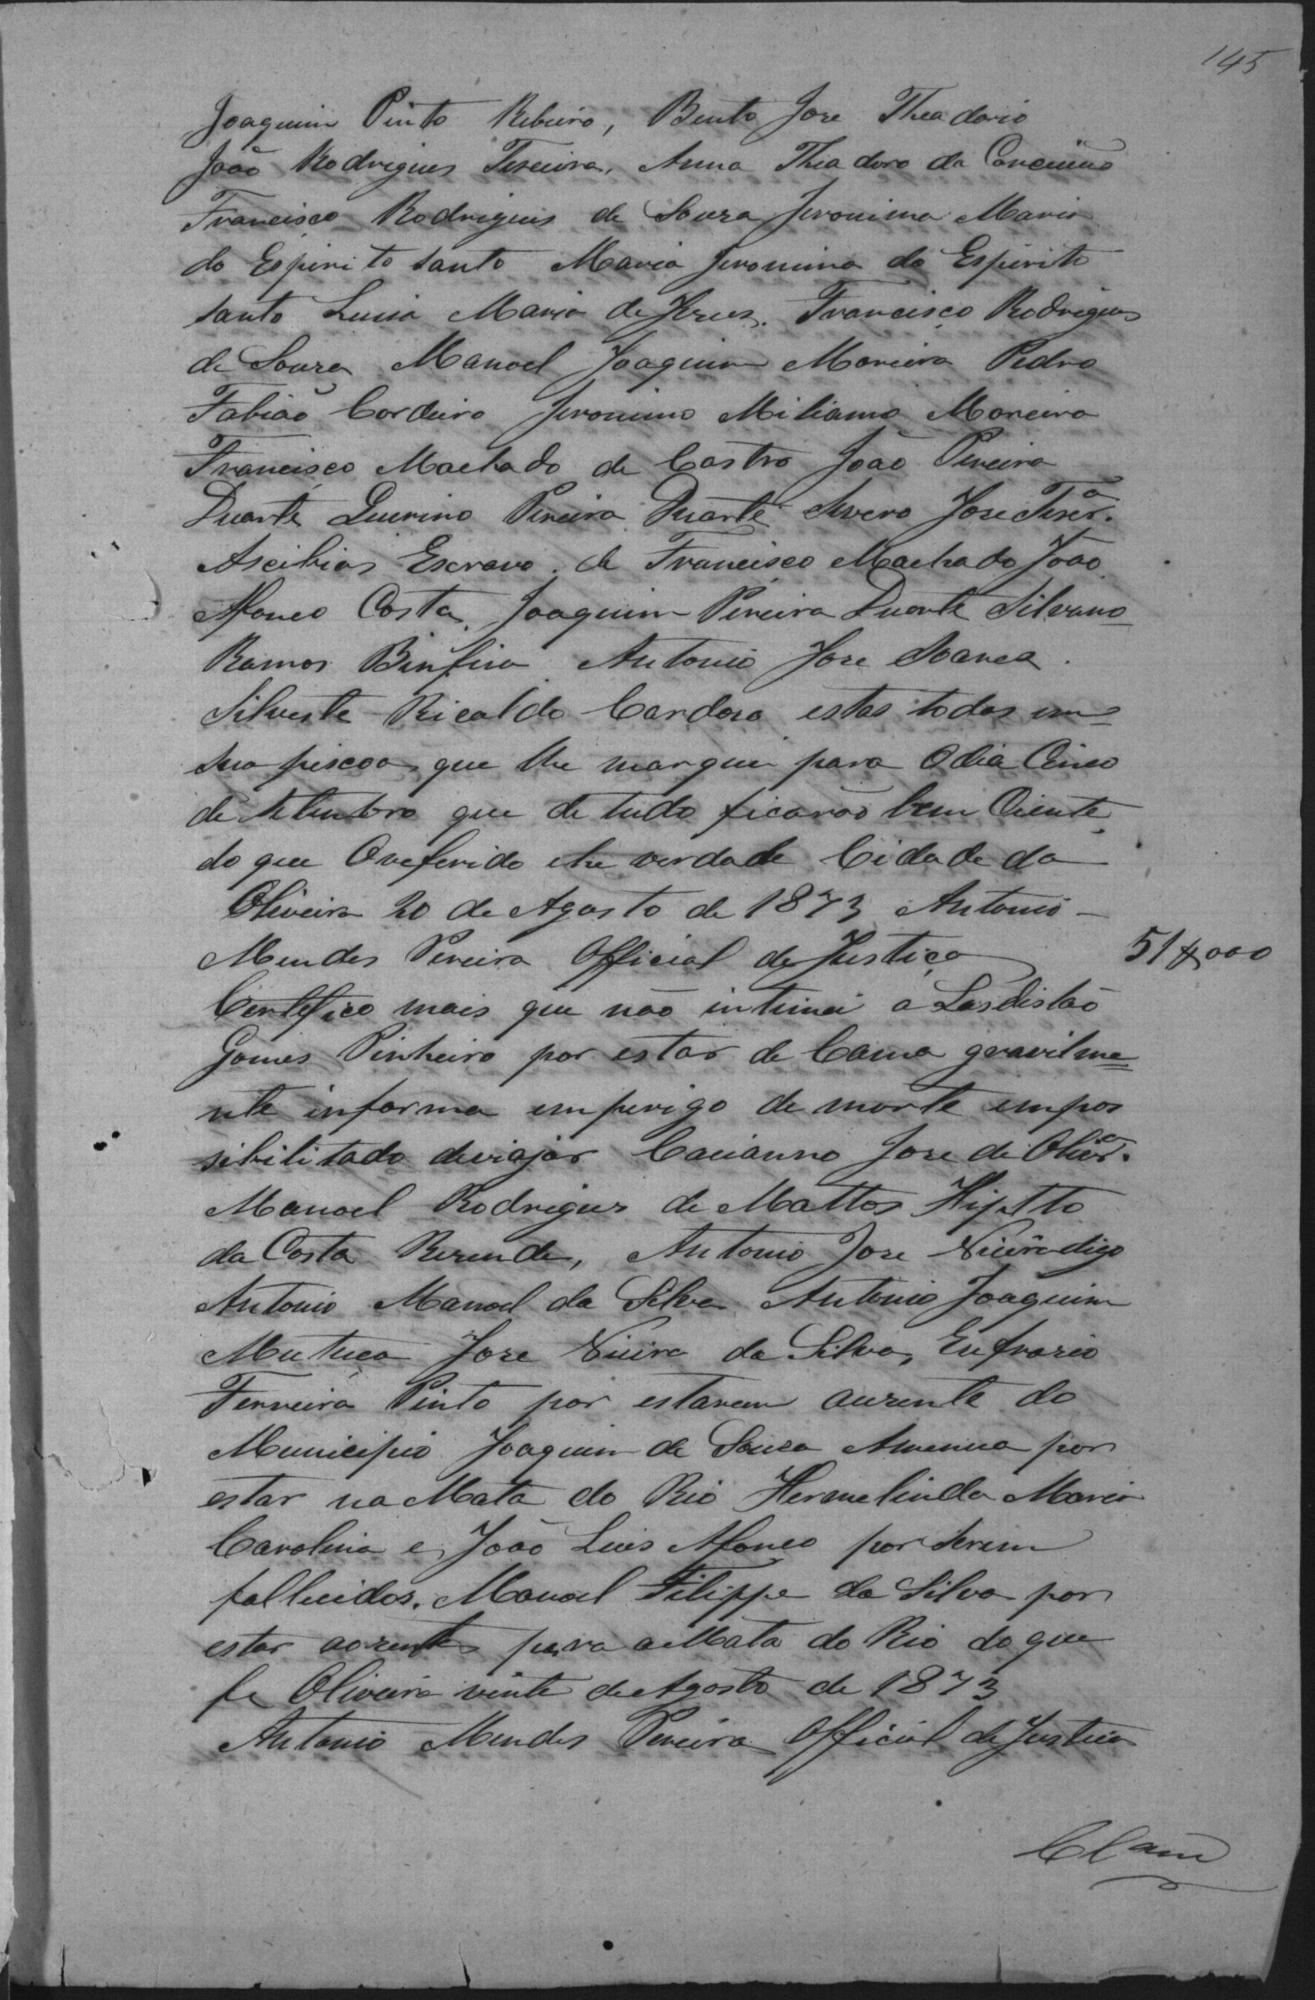 145
Joaquim Pinto Ribeiro, Bento Jose Theadorio
João Rodrigues Teseira, Anna Theadoro da Conceição
Francisco Rodrigues de Souza Jeronima Maria
do Espirito santo Maria Jeronima do Espirito
santo Luisa Maria de Jesus. Francisco Rodrigues
de Souza Manoel Joaquim Moreira Pedro
Fabião Cordeiro Jeronimo Miliano Moreira
Francisco Machado de Castro João Pereira
Duarte Querino Pereira Duarte Severo Jose
Escravo de Francisco Machado João
Afonco Costa, Joaquim Pereira Duarte Silvano
Ramos Antonio Jose
Silveste Ricaldo Cardoso estas todas em
sua pescoa que lhe marquei para Odia Cinco
de Setembro que de tudo ficarão bem Ciente
do que Oreferido he verdade Cidade da
Oliveira 20 de Agosto de 1873 Antonio
Mendes Pereira Official de Justiça 51$000
Certefico mais que não intimei a
Gomes Pinheiro por estar de Cama gravilme
nte inferma emperigo de morte empos
sibilitado deviajar Jose de Olivrª.
Manoel Rodrigues de Mattos
da Costa Rezende, Antonio Jose
Antonio Manoel da Silva Antonio Joaquim
Mutuca Jose Vieira da Silva, Eufrazio
Ferreira Pinto por estarem auzente do
Municipio Joaquim de Souza por
estar na Mata do Rio Hermelinda Maria
Carolina e João Luis Afonco por serem
fallecidos. Manoel Filippe da Silva por
estar para a Mata do Rio do que
fe Oliveira vinte de Agosto de 1873
Antonio Mendes Pereira Official de Justiça